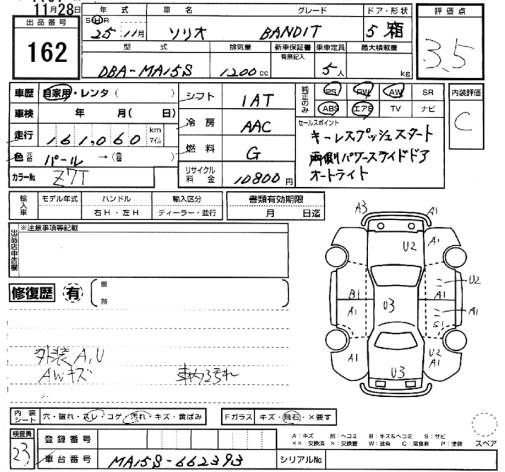 11月28日
出品番号
162
年式 車名 グレード ドア・形状
SHR 25年11月 ソリオ BANDIT 5 箱
型式 排気量 新車保証書 有無記入 乗車定員 最大積載量
DBA-MA15S 1200cc 5人 kg
評価点
3.5
車歴 自家用・レンタ( )
車検 年 月( 日)
走行 161,060 km マイル
色 元色 パール → (色 )
カラーNo. Z7T
シフト 1AT
冷房 AAC
燃料 G
リサイクル料金 10800円
純正のみ PS PW AW SR
ABS エアB TV ナビ
セールスポイント
キーレスプッシュスタート
両側パワースライドドア
オートライト
内装評価
C
輸入車 モデル年式 ハンドル 右H・左H 輸入区分 ディーラー・並行
書類有効期限
月 日迄
※注意事項等記載
修復歴 有 箇所
外装A,U
AWキズ
車内汚れ
A3 A1
U2 A1
A1 U2
B1 A1 U3 A1
A1 S1
A1 U2
U3 A1
内装シート 穴・破れ・スレ・コゲ・汚れ・キズ・黄ばみ
Fガラス キズ・飛石・×要す
A:キズ U:凹 B:キズ&ヘコミ S:サビ
××:交換済 ×:要交換 W:波 C:腐食 P:塗装
スペア
検査員 23
登録番号
車台番号 MA15S-662393
シリアルNo.